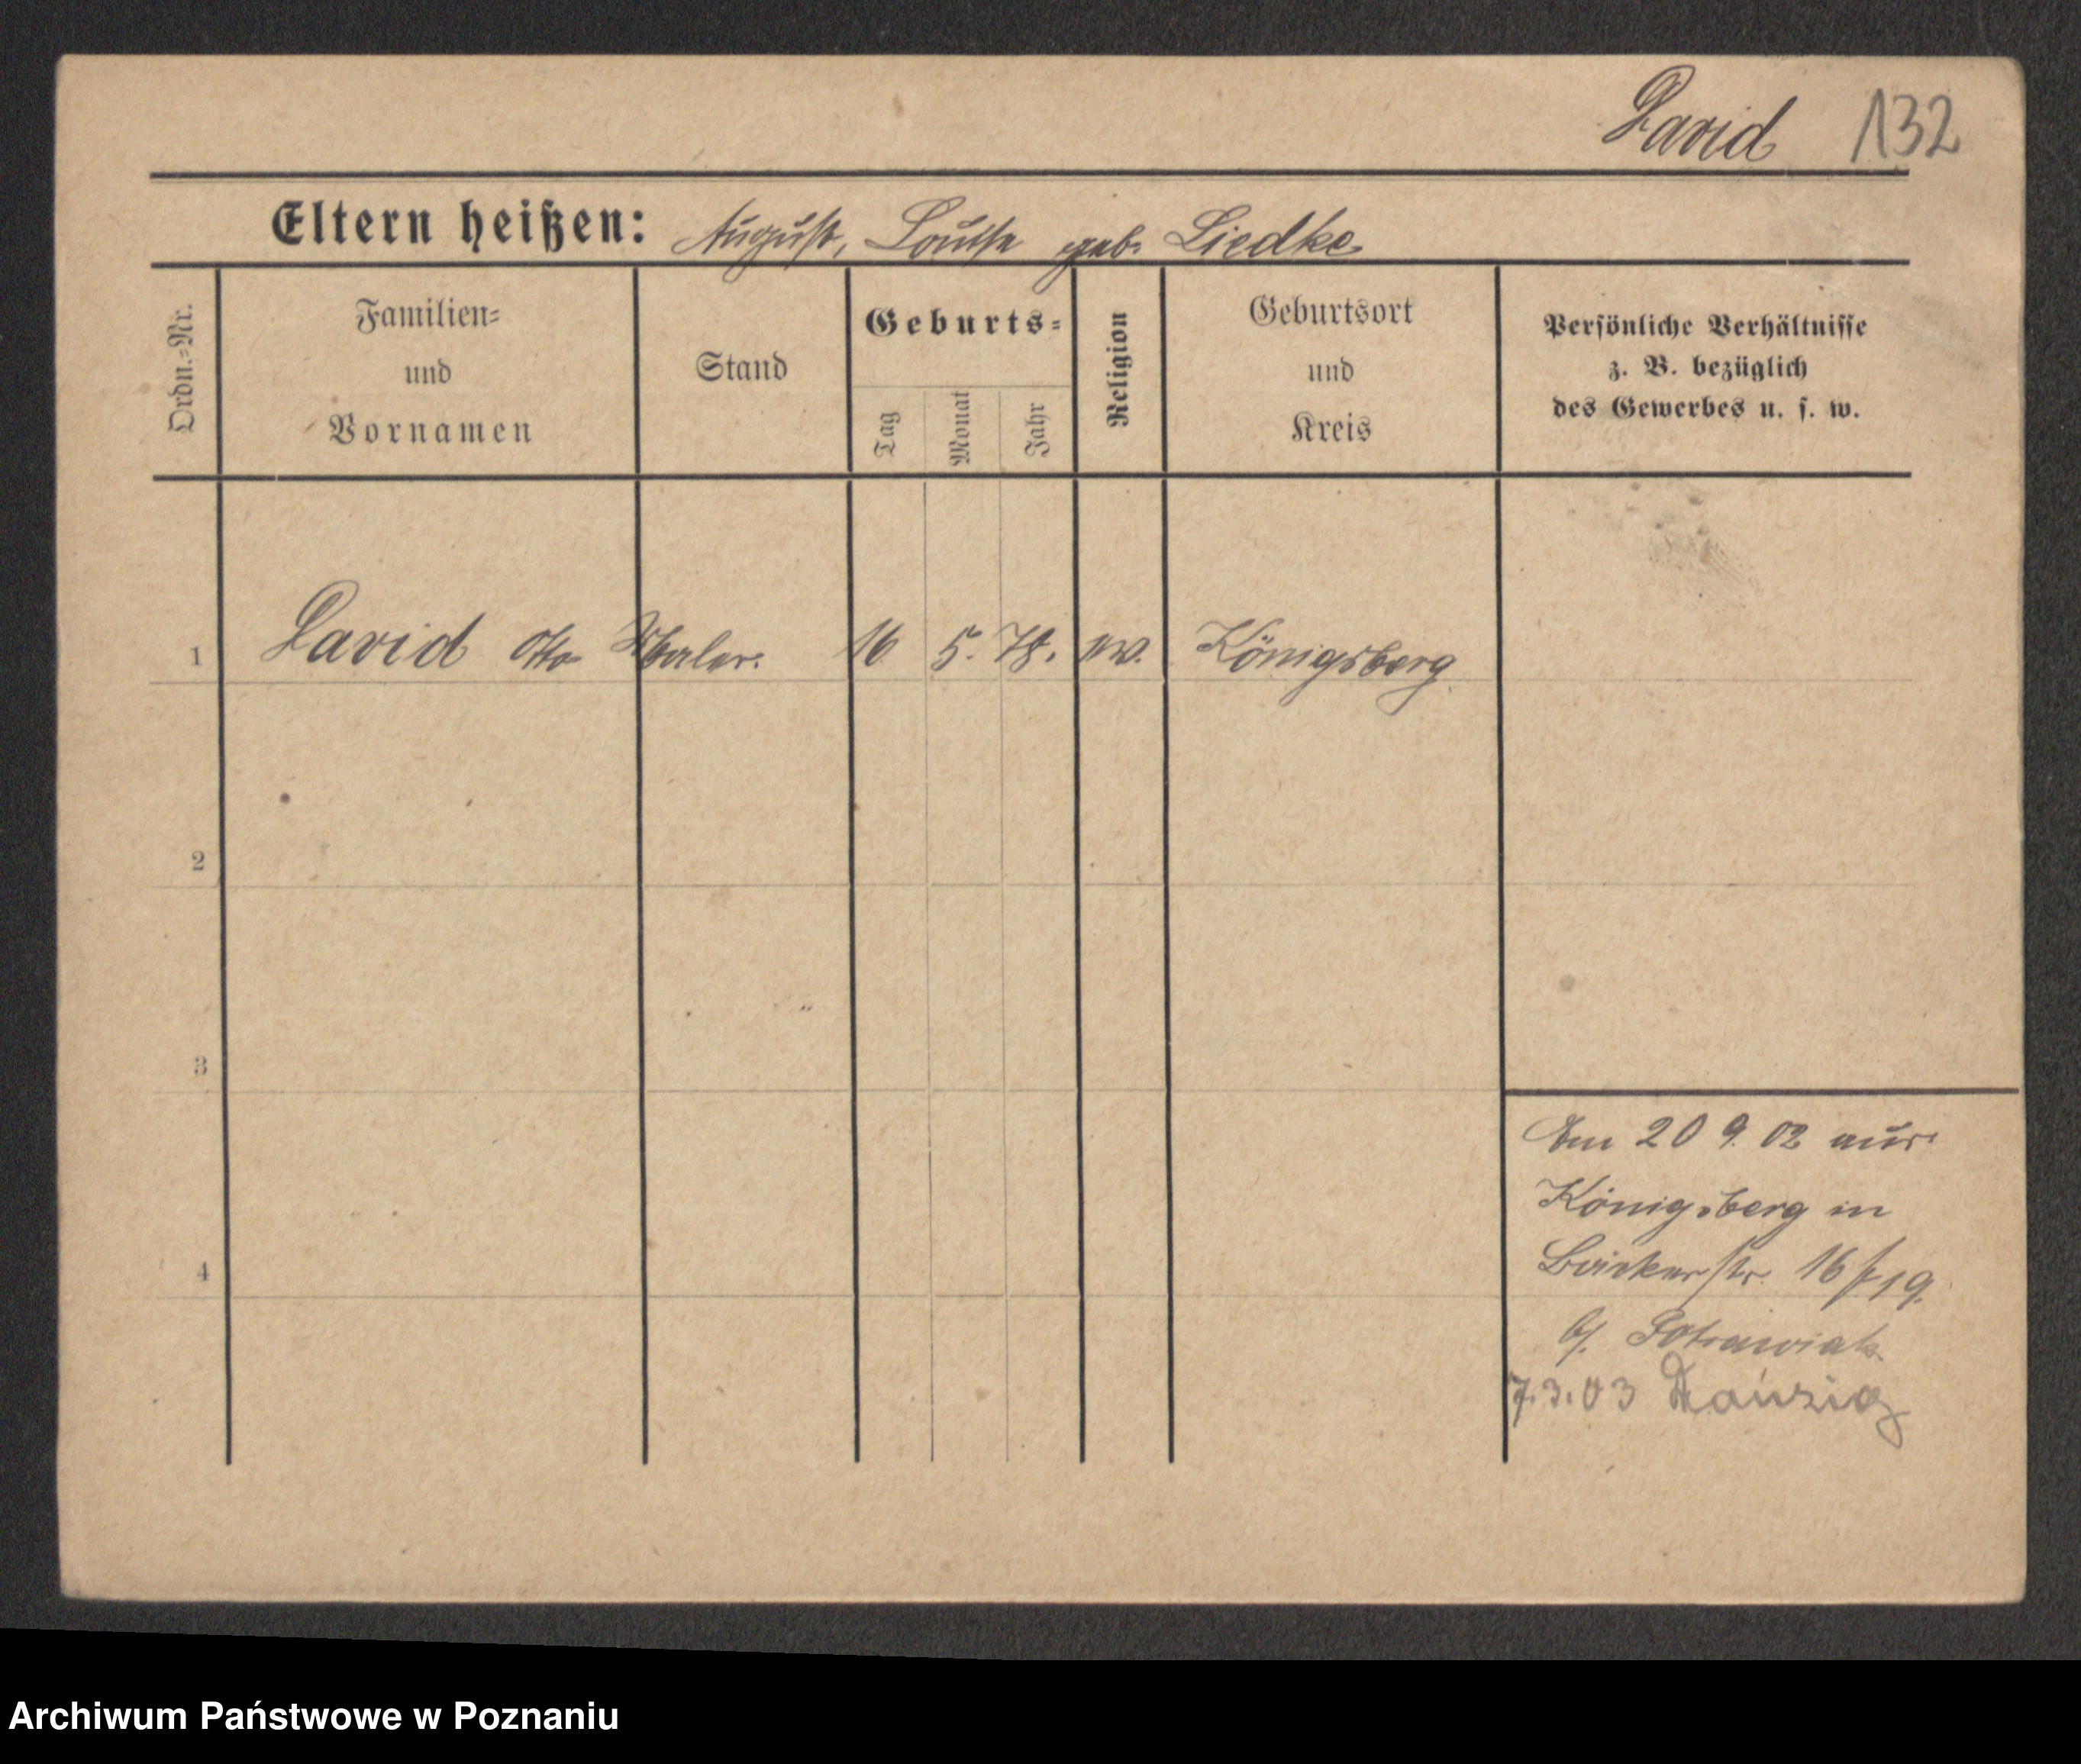 David 132
Eltern heißen: August, Louise geb. Liedke
Ordn.=Nr.
Familien=
und
Vornamen
Stand
Geburts=
Tag
Monat
Jahr
Religion
Geburtsort
und
Kreis
Persönliche Verhältnisse
z. B. bezüglich
des Gewerbes u. s. w.
1 David Otto Maler. 16 5. 78. ev. Königsberg
2
3
4
Am 20 9. 02 aus
Königsberg in
Bäckerstr. 16 19.
b/. Potrawiak
7.3.03 Danzig
Archiwum Państwowe w Poznaniu